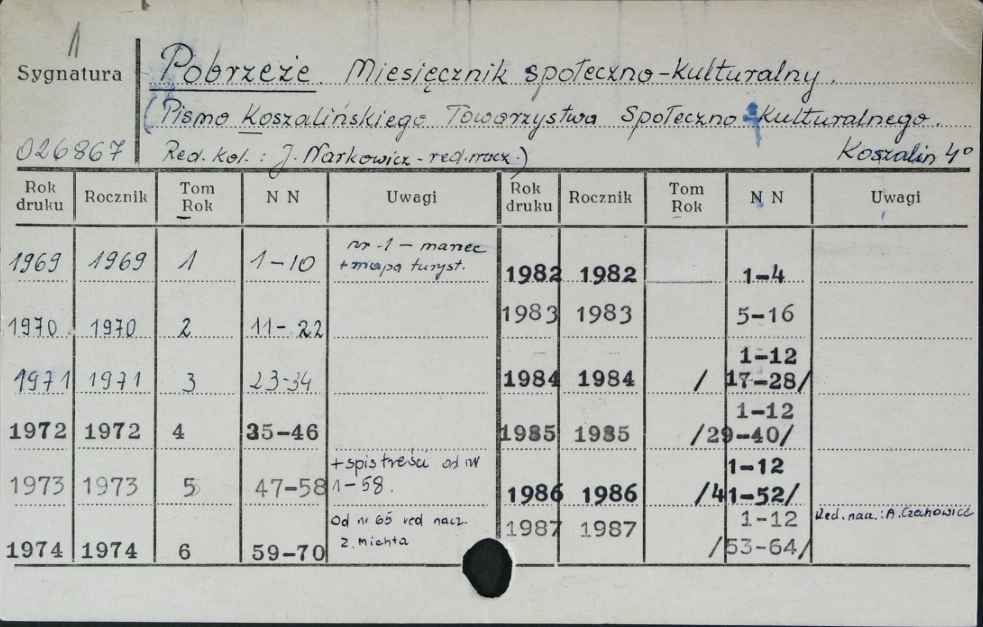 1
Sygnatura
Pobrzeże. Miesięcznik społeczno-kulturalny.
(Pismo Koszalińskiego Towarzystwa Społeczno-Kulturalnego.
026867
Red. kol.: J. Narkowicz - red. nacz.)
Koszalin 4°
Rok druku Rocznik Tom Rok N N Uwagi Rok druku Rocznik Tom Rok N N Uwagi
1969 1969 1 1-10 nr 1 - marzec
+ mapa turyst.
1982 1982 1-4
1970 1970 2 11-22
1983 1983 5-16
1971 1971 3 23-34
1-12
1984 1984 / 17-28/
1972 1972 4 35-46
1-12
1985 1985 /29-40/
1973 1973 5 47-58 + spis treści od nr
1-58.
1-12
1986 1986 /41-52/
1974 1974 6 59-70 Od nr 65 red nacz.
Z. Michta
1987 1987 1-12 Red. nacz.: A. Czechowicz
/53-64/